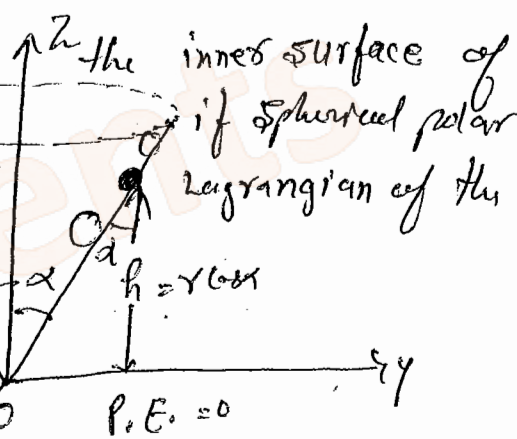 Z
the inner surface of
if Spherical polar
Lagrangian of the
α
α
h = r cos α
y
O
P. E. = 0